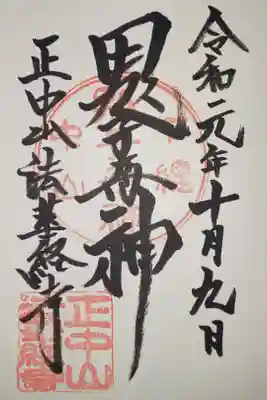 令和元年十月九日
鬼子母神
正中山法華経寺
正中山